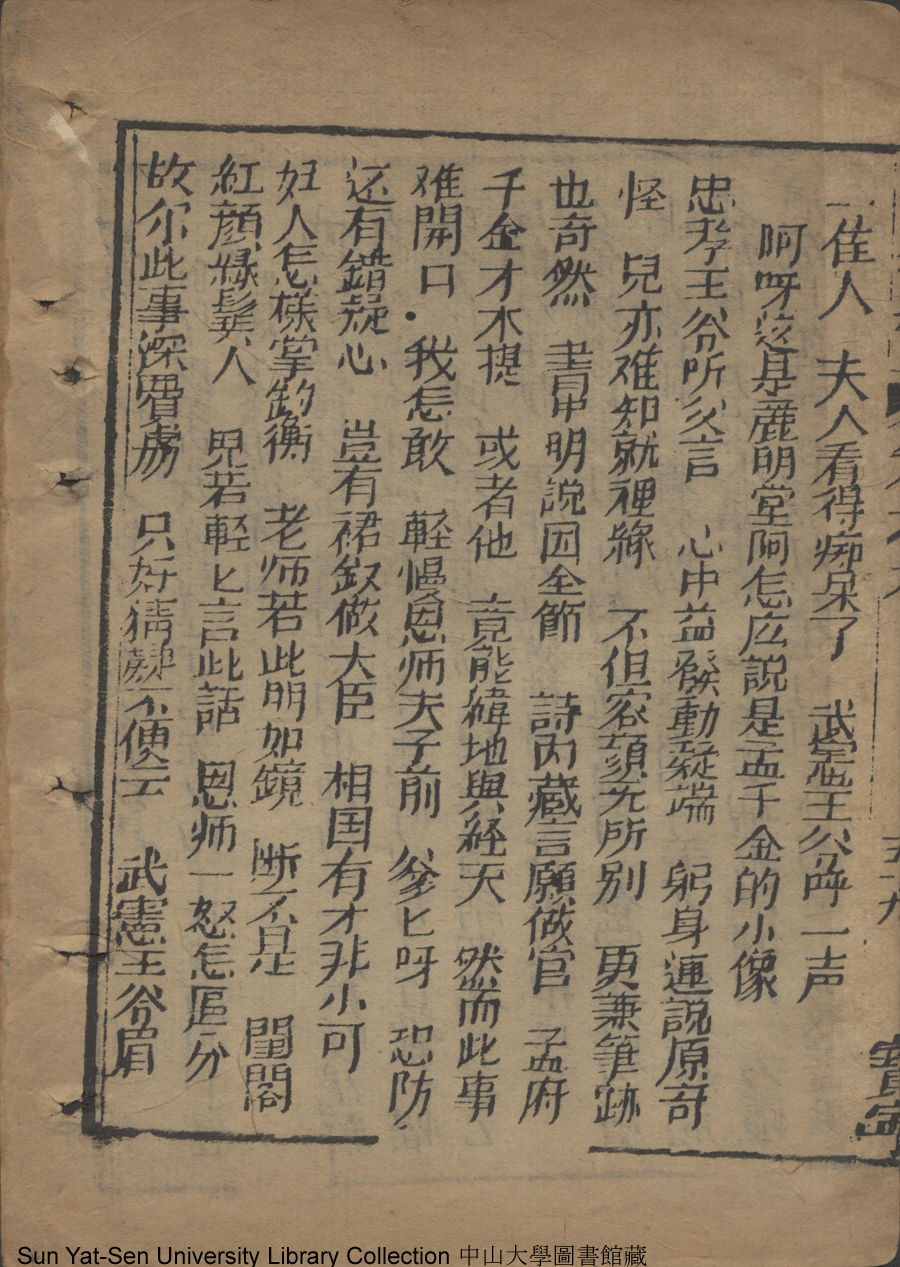 一佳人　夫人看得痴呆了　武憲王爷呼一声
阿呀這是鹿明堂阿怎広説是孟千金的小像
忠孝王爷听父言　心中益發動疑端　躬身連説原奇
怪　兒亦难知就裡緣　不但容顔无所別　更兼筆跡
也奇然　書中明説因全節　詩内藏言願做官　孟府
千金才木提　或者他　竟能緯地與経天　然而此事
难開口．我怎敢　軽慢恩师夫子前　爹匕呀　恐防
还有錯疑心　豈有裙釵做大臣　相国有才非小可
妇人怎樣掌鈞衡　老师若此明如鏡　断不是　閨閣
紅顔緑鬓人　児若軽匕言此話　恩师一怒怎區分
故尔此事深費虏　只好猜疑不便云　武憲王爷眉
五十九
寳寧
Sun Yat-Sen University Library Collection 中山大學圖書館藏